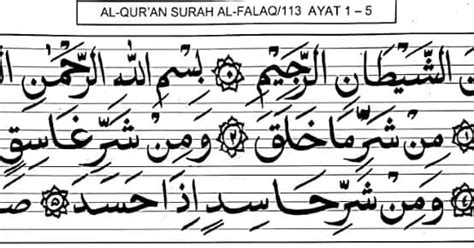 AL-QUR'AN SURAH AL-FALAQ/113 AYAT 1 – 5
الشَّيْطَانِ الرَّجِيْمِ ۝ بِسْمِ اللهِ الرَّحْمٰنِ
۝١ مِنْ شَرِّ مَا خَلَقَ ۝٢ وَمِنْ شَرِّ غَاسِقٍ
۝٤ وَمِنْ شَرِّ حَاسِدٍ اِذَا حَسَدَ ۝٥